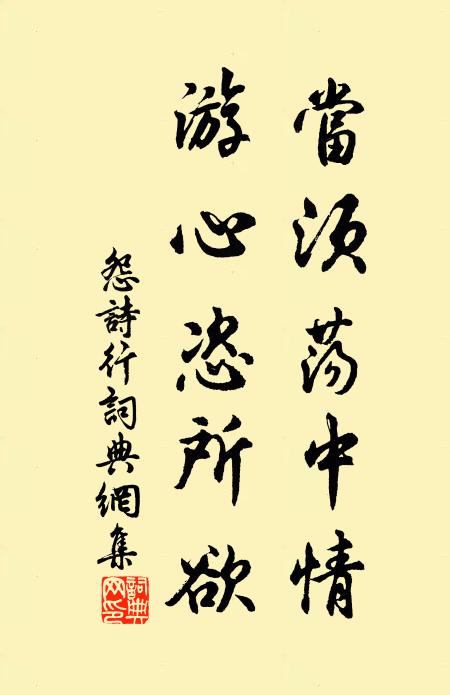 當須蕩中情
游心恣所欲
怨詩行詞典網集